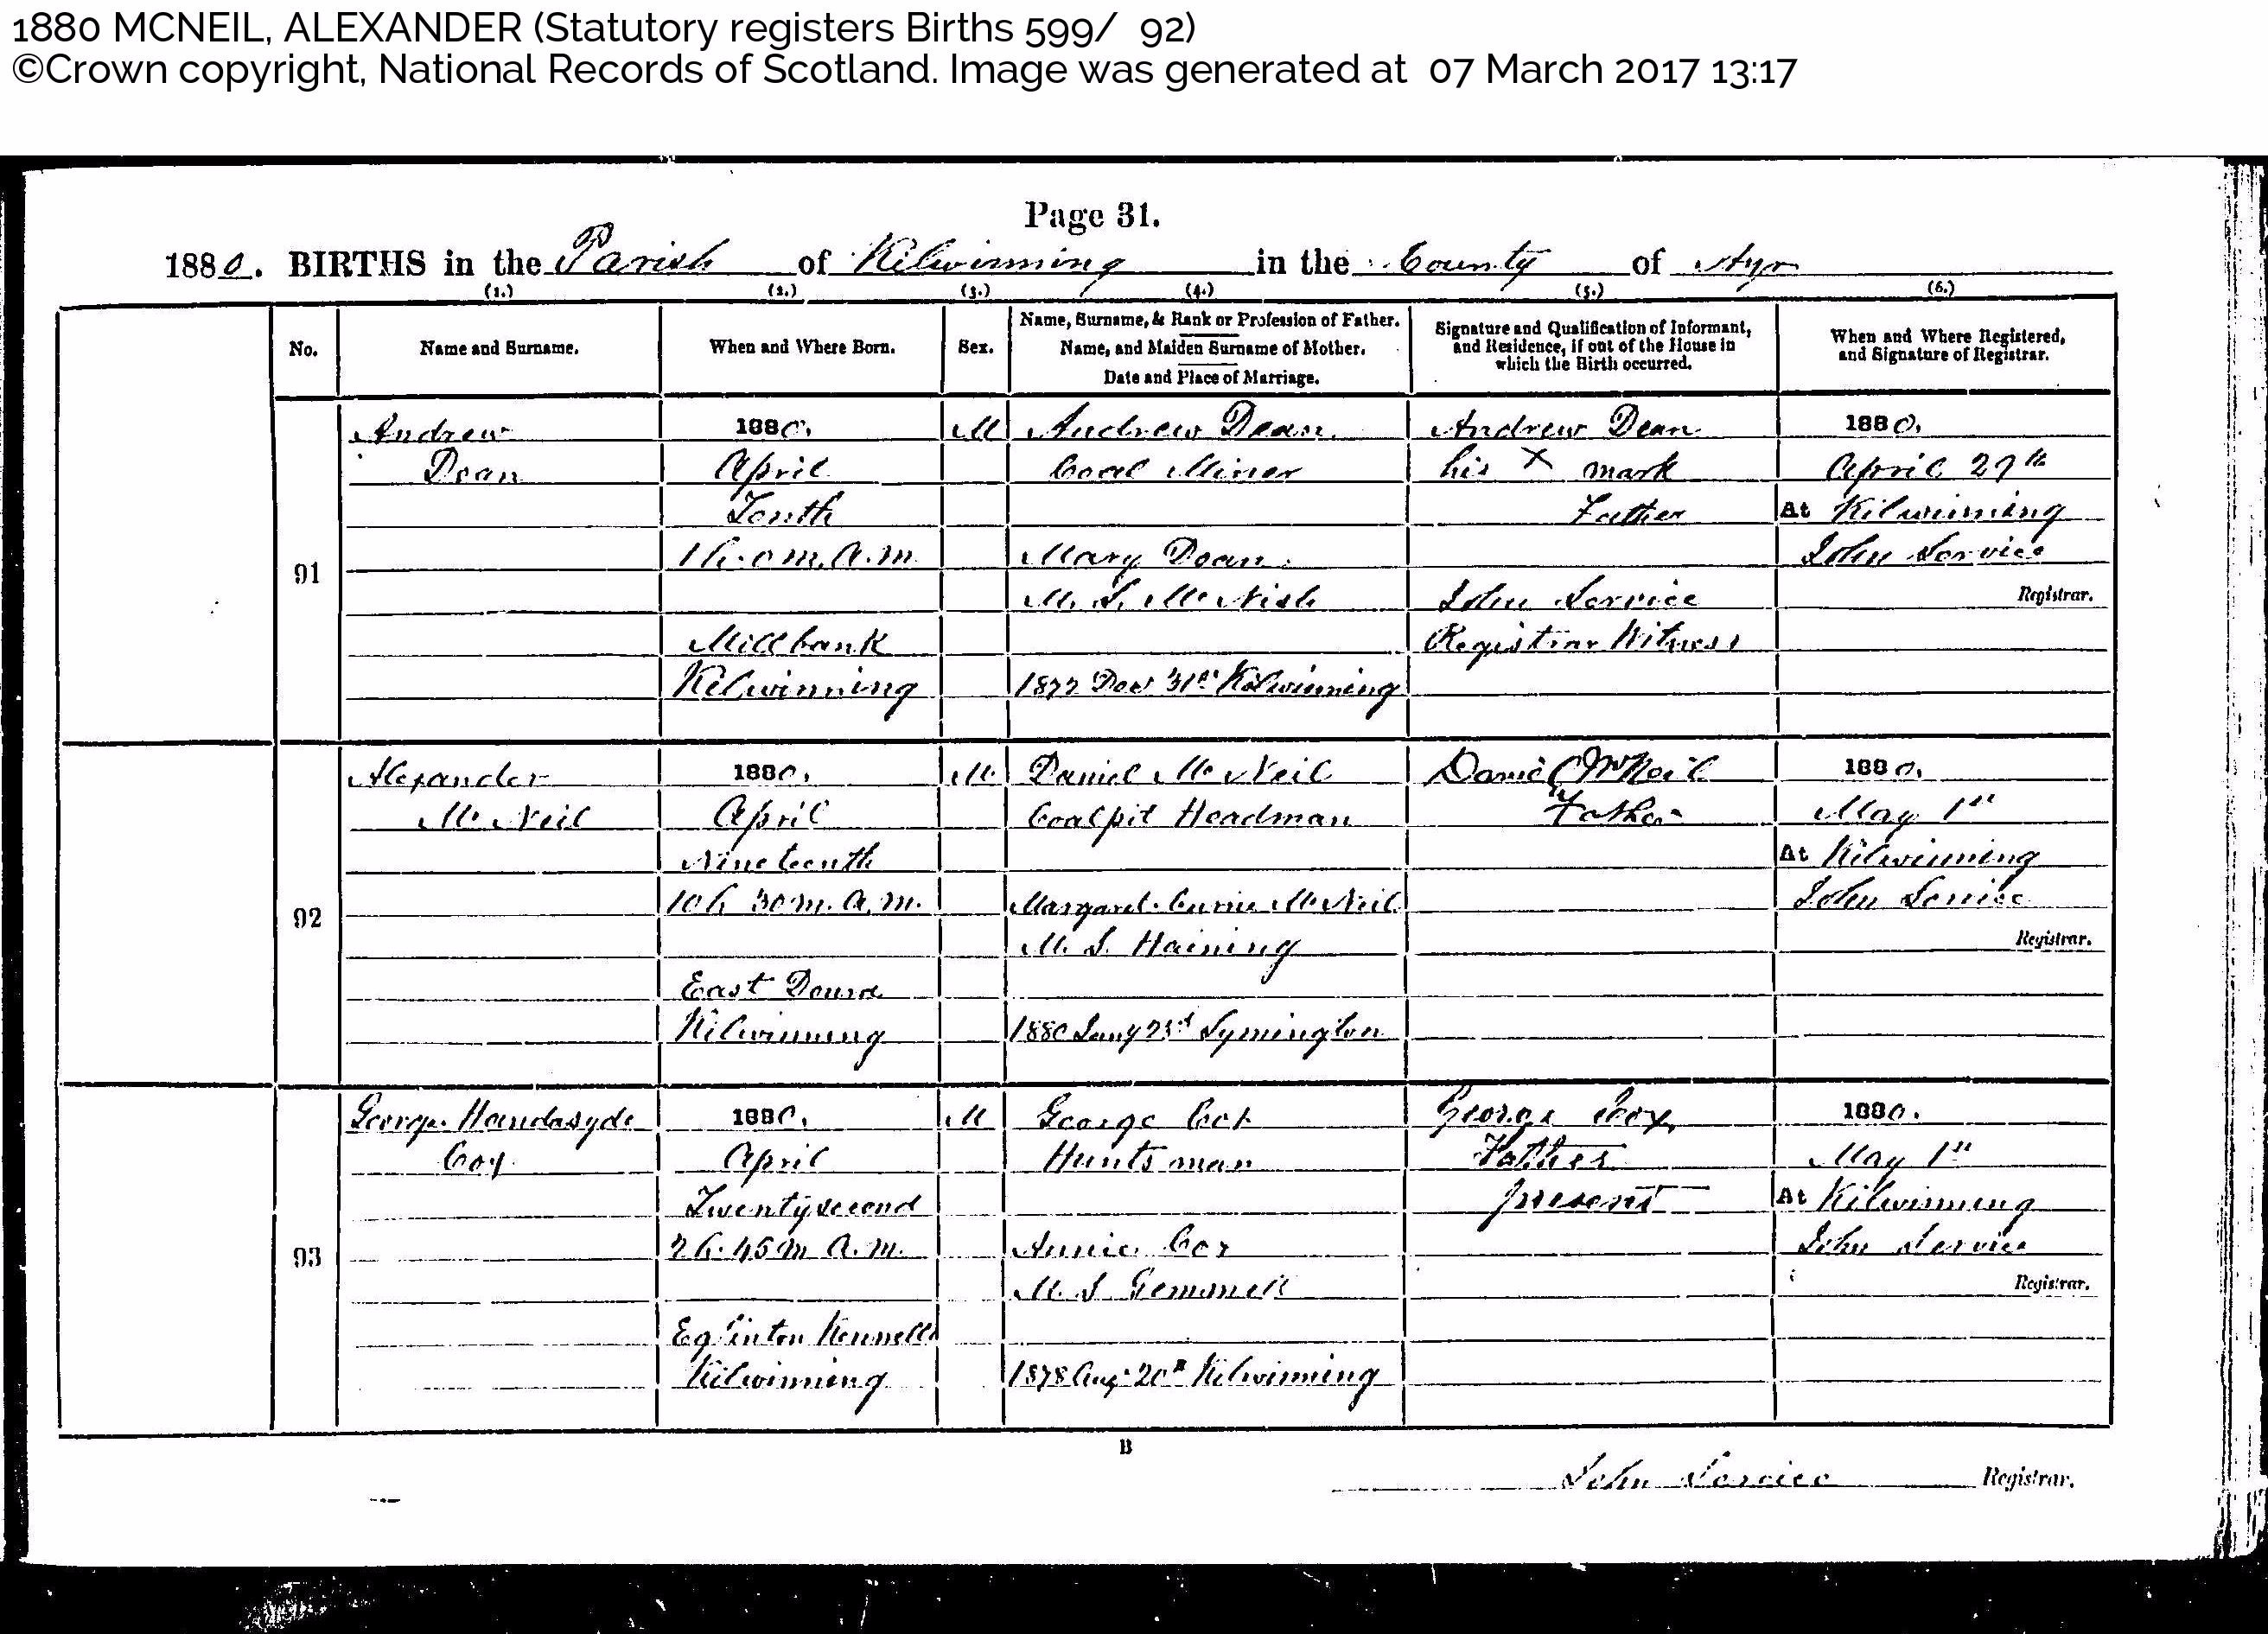 1880 MCNEIL, ALEXANDER (Statutory registers Births 599/ 92)
©Crown copyright, National Records of Scotland. Image was generated at 07 March 2017 13:17
Page 31.
1880. BIRTHS in the Parish of Kilwinning in the County of Ayr
(1.) (2.) (3.) (4.) (5.) (6.)
No.
Name and Surname.
When and Where Born.
Sex.
Name, Surname, & Rank or Profession of Father.
Name, and Maiden Surname of Mother.
Date and Place of Marriage.
Signature and Qualification of Informant,
and Residence, if out of the House in
which the Birth occurred.
When and Where Registered,
and Signature of Registrar.
91
Andrew
Dean
1880.
April
Tenth
1h. 0m. A.M.
Millbank
Kilwinning
M
Andrew Dean
Coal Miner
Mary Dean
M. S. McNish
Dec 31st Kilwinning
Andrew Dean
his X mark
Father
John Service
Registrar Witness
1880.
April 27th
At Kilwinning
John Service
Registrar.
92
Alexander
McNeil
1880.
April
Nineteenth
10h 30m. A.M.
East Doura
Kilwinning
M
Daniel McNeil
Coalpit Headman
Margaret Currie McNeil
M. S. Haining
1880 Jany 23rd Symington
Daniel McNeil
Father
1880.
May 1st
At Kilwinning
John Service
Registrar.
93
George Handasyde
Cox
1880.
April
Twenty second
2h. 45m A.M.
Eglinton Kennells
Kilwinning
M
George Cox
Huntsman
Annie Cox
M. S Gemmell
1878 Aug. 20th Kilwinning
George Cox
Father
present
1880.
May 1st
At Kilwinning
John Service
Registrar.
B
John Service Registrar.